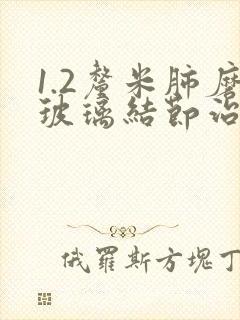 1.2釐米肺磨
玻璃結節治
俄羅斯方塊丁